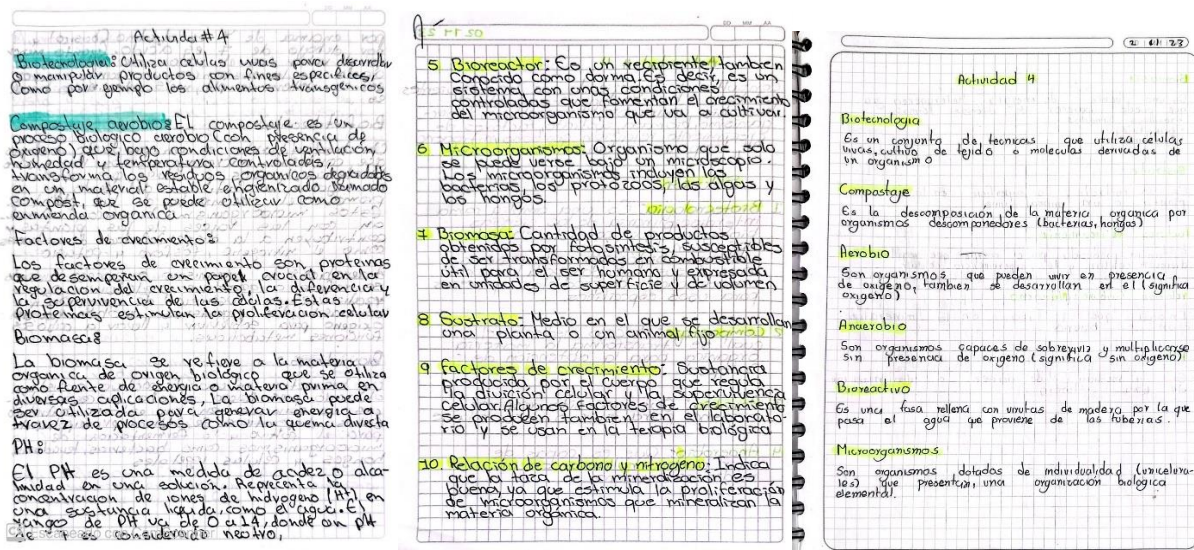 Actividad #4
Biotecnologia: Utiliza celulas vivas para desarrollar
o manipular productos con fines especificos,
Como por ejemplo los alimentos transgenicos
Compostaje aerobio: El compostaje es un
proceso biologico aerobio (con presencia de
oxigeno), que bajo condiciones de ventilación,
humedad y temperatura controladas,
transforma los residuos organicos degradables
en un material estable e higienizado llamado
compost, que se puede utilizar como
enmienda organica
Factores de crecimiento:
Los factores de crecimiento son proteinas
que desempeñan un papel crucial en la
regulacion del crecimiento, la diferencia y
la supervivencia de las celulas. Estas
Proteinas estimulan la proliferacion celular
Biomasa:
La biomasa se refiere a la materia
organica de origen biológico que se utiliza
como fuente de energia o materia prima en
diversas aplicaciones, La biomasa puede
ser utilizada para generar energia a
travez de procesos como la quema directa
PH:
El PH es una medida de acidez o alca-
linidad en una solución. Representa la
concentracion de iones de hidrogeno (H+) en
una sustancia liquida, como el agua. El
rango de PH va de 0 a 14, donde un pH
de 7 es considerado neutro,
5 Bioreactor: Es un recipiente tambien
conocido como dorma. Es decir, es un
sistema con unas condiciones
controladas que fomentan el crecimiento
del microorganismo que va a cultivar.
6 Microorganismos: Organismo que solo
se puede verse bajo un microscopio.
Los microorganismos incluyen las
bacterias, los protozoos, las algas y
los hongos.
7 Biomasa: Cantidad de productos
obtenidos por fotosintesis, susceptibles
de ser transformados en combustible
útil para el ser humano y expresada
en unidades de superficie y de volumen
8 Sustrato: Medio en el que se desarrollan
una planta o un animal fijo
9 factores de crecimiento: Sustancia
producida por el cuerpo que regula
la división celular y la supervivencia
celular. Algunos factores de crecimiento
se producen también en el laborato
rio y se usan en la terapia biológica
10. Relación de carbono y nitrogeno: Indica
que la taza de la mineralización es
buena, ya que estimula la proliferación
de microorganismos que mineralizan la
materia orgánica.
23
Actividad 4
Biotecnologia
Es un conjunto de tecnicas que utiliza células
vivas, cultivo de tejido o moleculas derivadas de
un organismo
Compostaje
Es la descomposición de la materia organica por
organismos descomponedores (bacterias, hongos)
Aerobio
Son organismos que pueden vivir en presencia
de oxigeno, tambien se desarrollan en el (significa
oxigeno)
Anaerobio
Son organismos capaces de sobrevivir y multiplicarse
sin presencia de oxigeno (significa sin oxigeno)
Bioreactivo
Es una fosa rellena con virutas de madera por la que
pasa el agua que proviene de las tuberias.
Microorganismos
Son organismos dotados de individualidad (unicelura-
les) que presentan, una organización biologica
elemental.